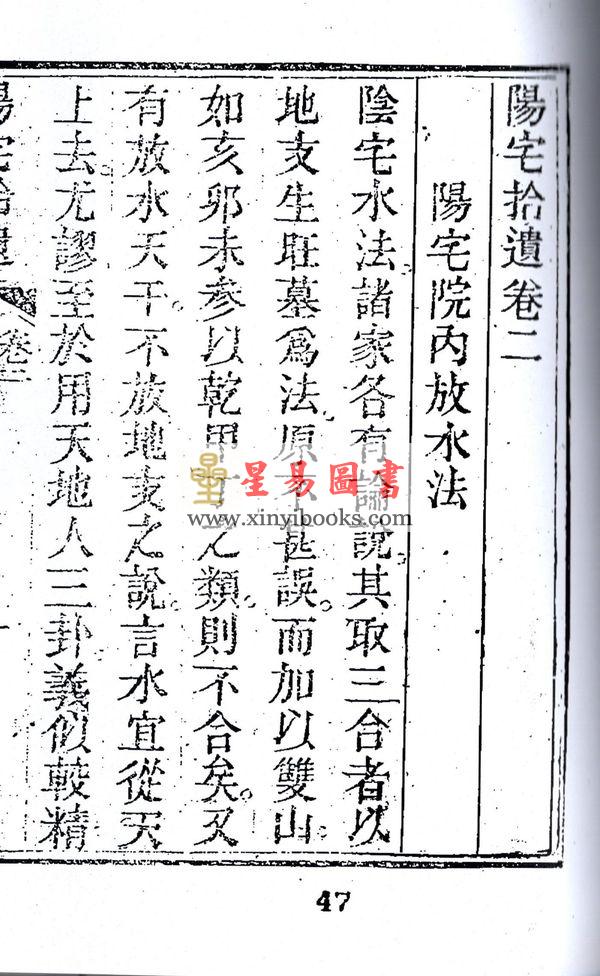 陽宅拾遺卷二
陽宅院內放水法
陰宅水法諸家各有論說。其取三合者以
地支生旺墓爲法。原甚誤。而加以雙山。
如亥卯未參以乾甲丁之類。則不合矣。又
有放水天干。不放地支之說。言水宜從天
上去尤謬至於用天地人三卦義似較精
陽宅拾遺 卷二
星易圖書
www.xinyibooks.com
47